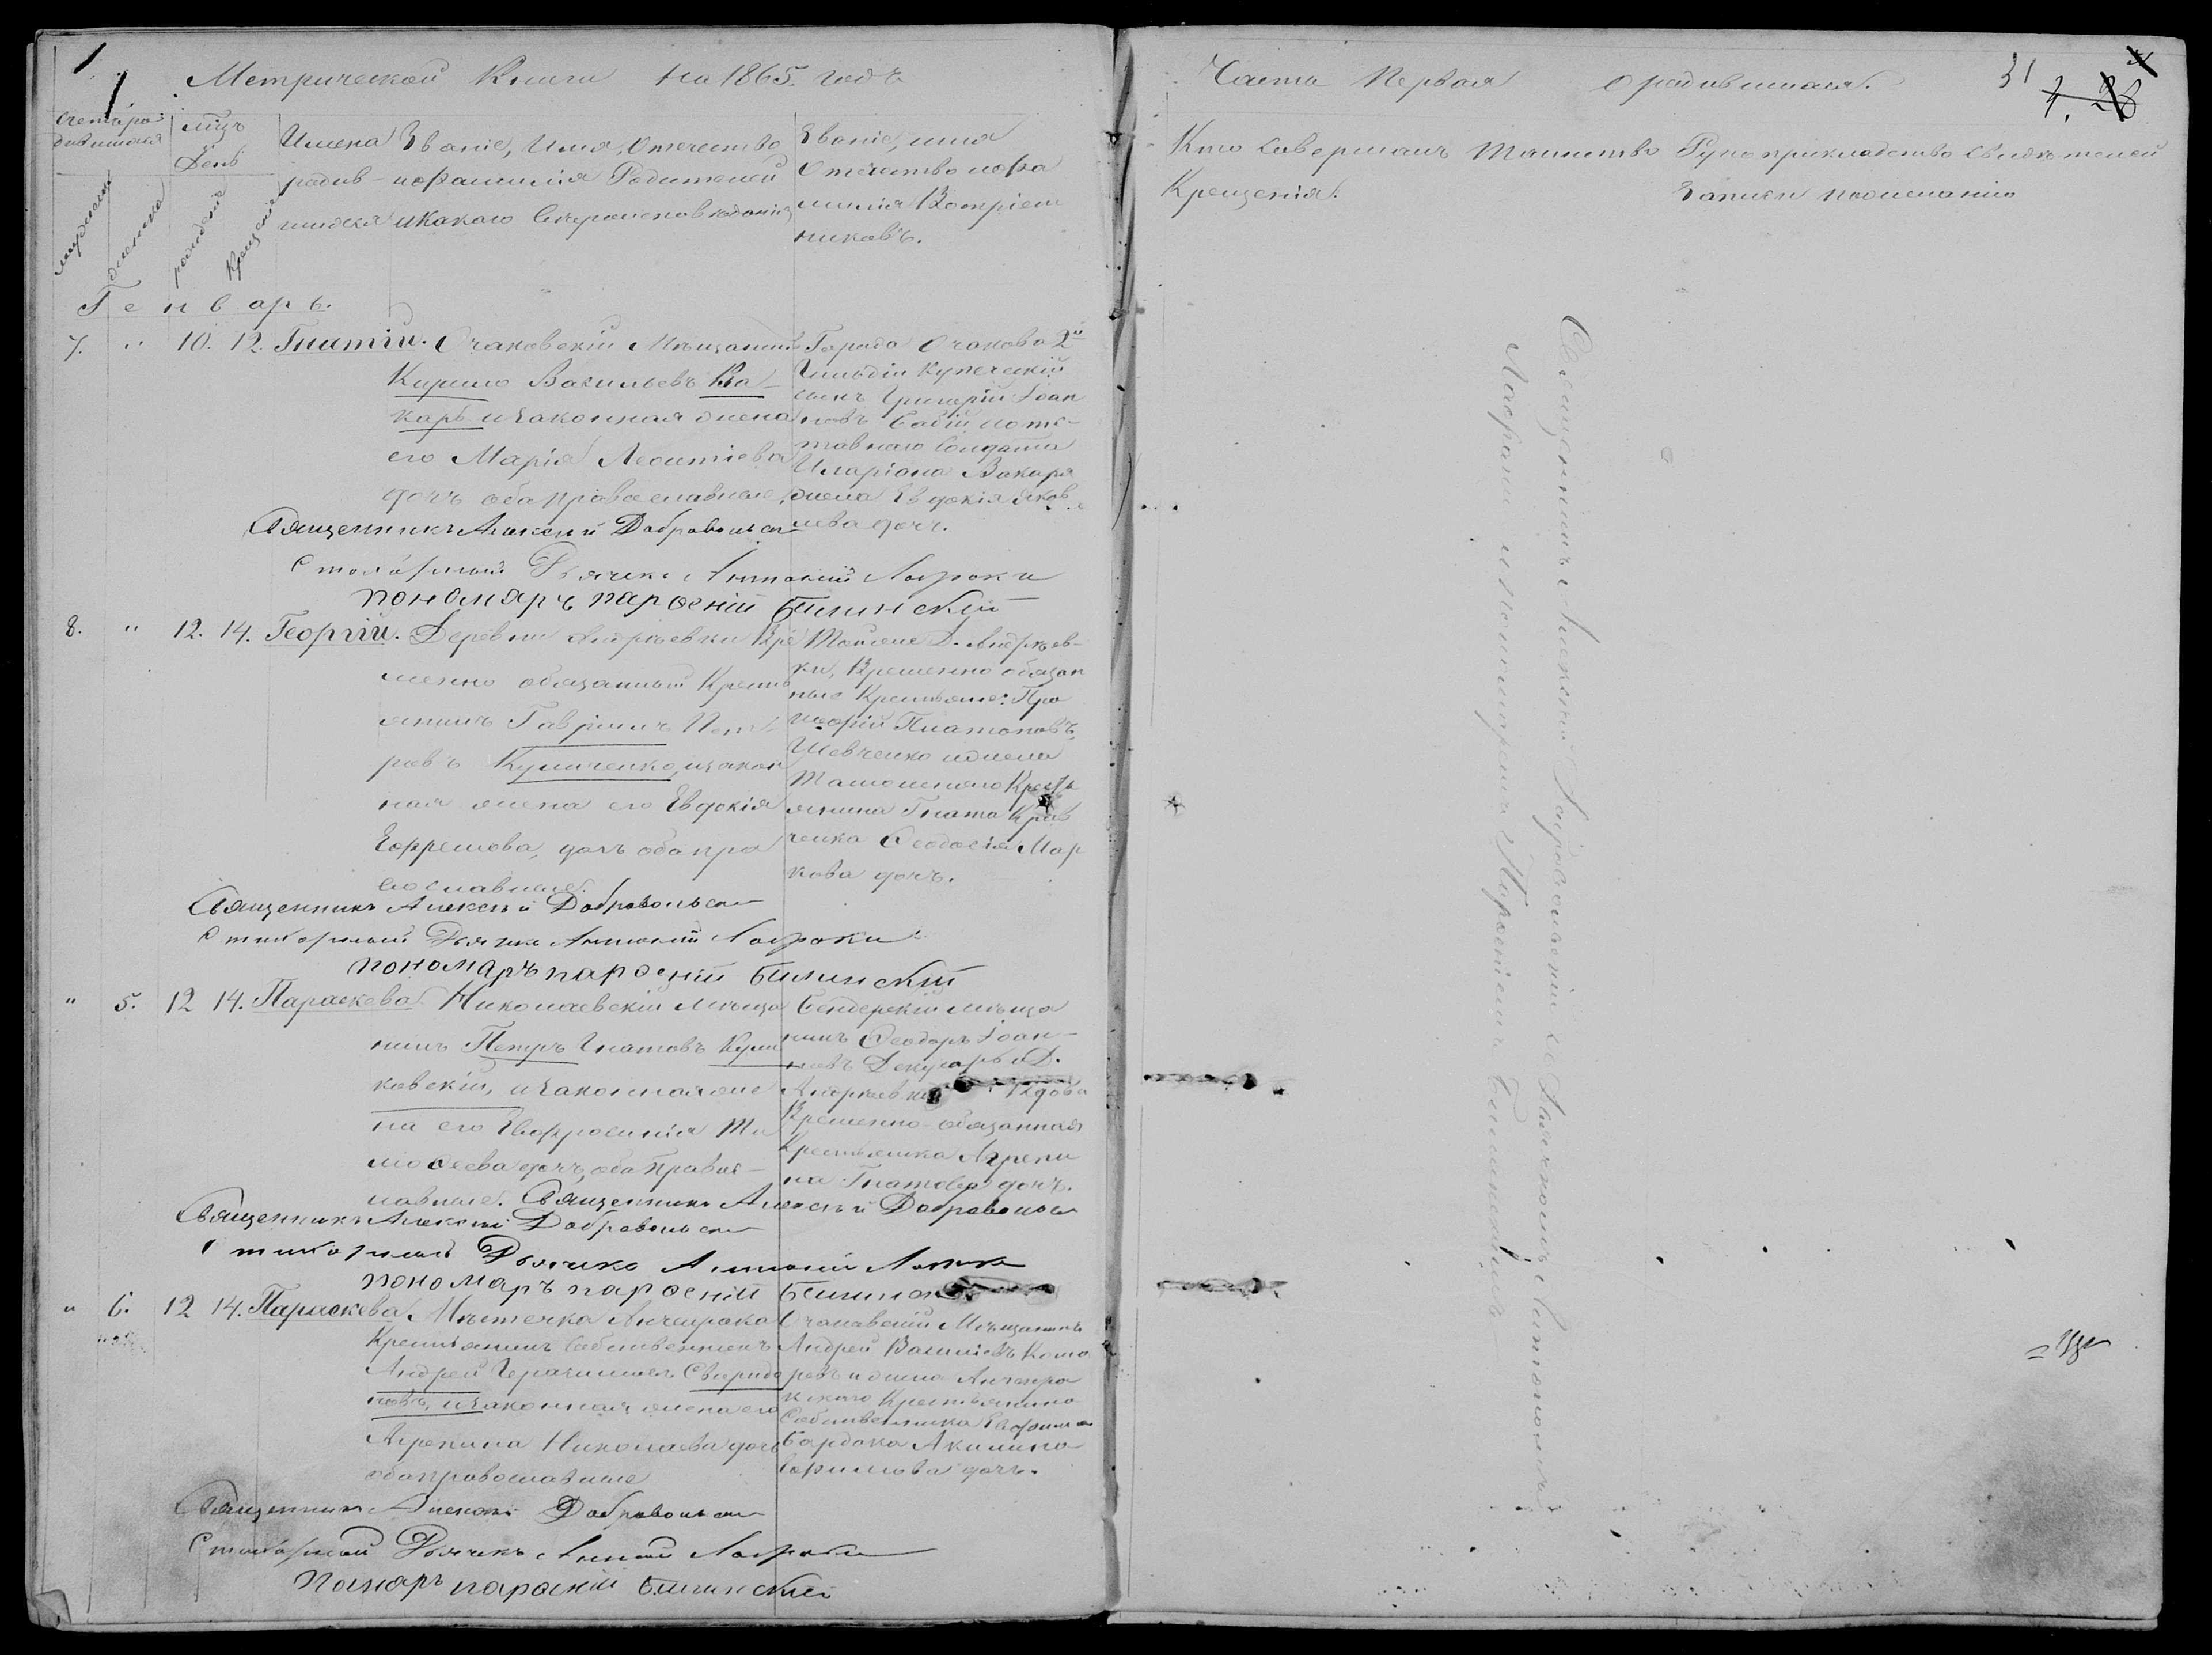 Метрической Книги на 1865. годъ
Счетъ ро-
дившихся
мцъ
и
день
мужеска
женска
рожденія
крещенія
Имена
родив-
шихся
Званіе, Имя, Отечество
и Фамилія Родителей
и какого Вѣроисповеданія
Званіе, имя
Отечество и фа
милія Воспріем
никовъ.
Генварь.
7. " 10. 12. Гнатій. Очаковскій Мѣщанинъ
Кирило Васильевъ Ва-
карь и законная жена
его Марія Леонтіева
дочь оба православные.
Города Очакова 2й
Гильдіи Купеческій
сынъ Григорій Іоан
новъ Бабій и отс-
тавнаго Солдата
Иларіона Вакаря
жена Евдокія Яков
лева дочь.
Священникъ Алексѣй Добровольск
Стихарный Дьячекъ Антоній
пономарь парфеній Билинскій
8. " 12. 14. Георгій. Деревни Андрѣевки Вре
менно обязанный Кресть
янинъ Гавріилъ Пет
ровъ Кумиченко, и закон
ная жена его Евдокія
Ефремова, дочь оба пра
вославные.
Тойже Д. Андрѣев-
ки, Временно обязан
ные Крестьяне: Про
кофій Платоновъ
Шевченко и жена
Тамошняго Кресть
янина Гната Крав
ченка Феодосія Мар
кова дочь.
Священникъ Алексѣй Добровольск
Стихарный Дьячекъ Антоній
пономарь парфеній Билинскій
" 5. 12 14. Параскева. Николаевскій мѣща
нинъ Петръ Игнатовъ Кули
ковскій, и законная же
на его Евфросинія Ти
мофеева дочь, оба правос-
лавные.
Бендерскій мѣща
нинъ Феодоръ Іоан-
новъ Декусарь и Д.
Андрѣевки Вдова
Временно-обязанная
Крестьянка Агрепи
на Гнатова дочь.
Священникъ Алексѣй Добровольск
Священникъ Алексѣй Добровольск
Стихарный Дьячекъ Антоній
пономарь парфеній Билинс
" 6. 12 14. Параскева. Мѣстечка Анчекрака
Крестьянинъ Собственникъ
Андрей Герасимовъ Свиридо
новъ, и законная жена его
Агрепина Николаева дочь
оба православные
Очаковскій Мѣщанинъ
Андрей Васильевъ Кома
ровъ и жена Анчекра
кскаго Крестьянина
Собственника Евфима
Бардака Акилина
Ефимова дочь.
Священникъ Алексѣй Добровольск
Стихарный Дьячекъ Антоній
понмарь парфеній Билинскій
Часть Первая о родившихся.
31
Кто совершалъ Таинство
Крещенія.
Рукоприкладство свидѣтелей
Записи по желанію
Священникъ Алексѣй Добровольскій съ Дьячкомъ Антоніемъ
и пономаремъ Парфеніемъ Билинскимъ